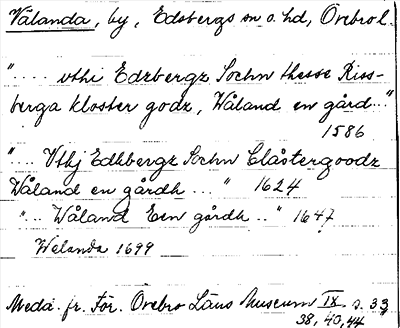 Välanda, by, Edsbergs sn o. hd, Örebro l.
".... vthi Edzbergz Sochn thesse Riss-
berga kloster godz, Wåland en gård..."
1586
"... Vthj Edhbergz Sochn Clåstergoodz
Wåland en gårdh ..." 1624
"... Wåland Een gårdh .." 1647
Welanda 1699
Medd. fr. För. Örebro Läns Museum IX s. 33,
38, 40, 44